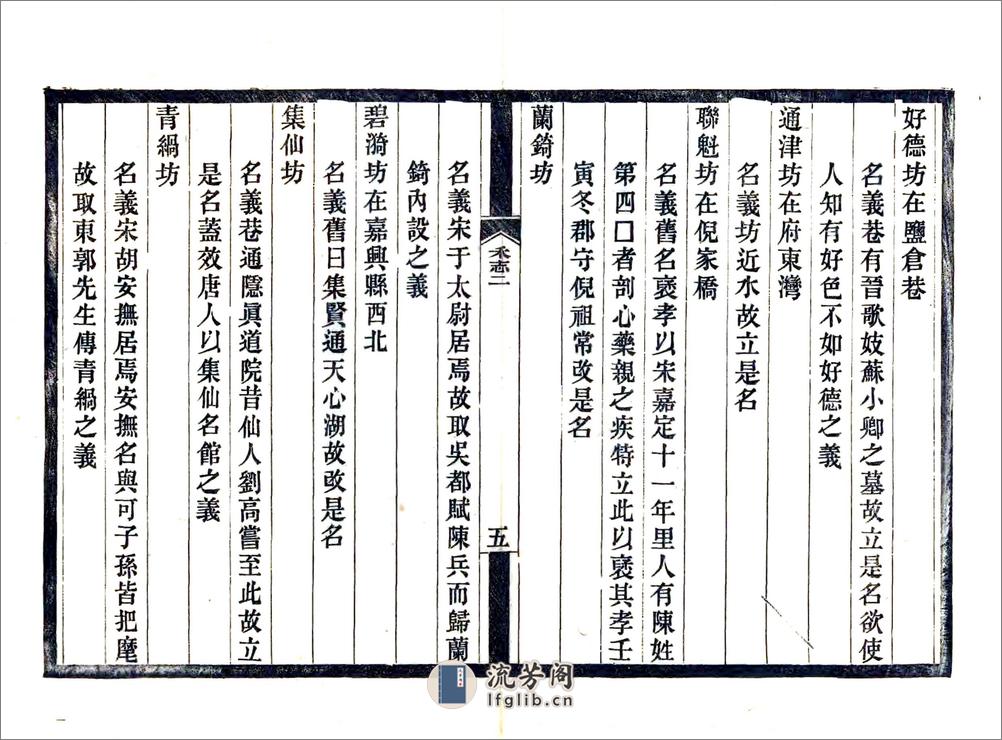 好德坊在鹽倉巷
名義巷有晉歌妓蘇小卿之墓故立是名欲使
人知有好色不如好德之義
通津坊在府東灣
名義坊近水故立是名
聯魁坊在倪家橋
名義舊名褒孝以宋嘉定十一年里人有陳姓
第四口者剖心藥親之疾特立此以褒其孝壬
寅冬郡守倪祖常改是名
蘭錡坊
禾志二
五
名義宋于太尉居焉故取吳都賦陳兵而歸蘭
錡內設之義
碧漪坊在嘉興縣西北
名義舊曰集賢通天心湖故改是名
集仙坊
名義巷通隱眞道院昔仙人劉高嘗至此故立
是名蓋效唐人以集仙名館之義
青綱坊
名義宋胡安撫居焉安撫名與可子孫皆把麾
故取東郭先生傳青綱之義
流芳阁
lfglib.cn